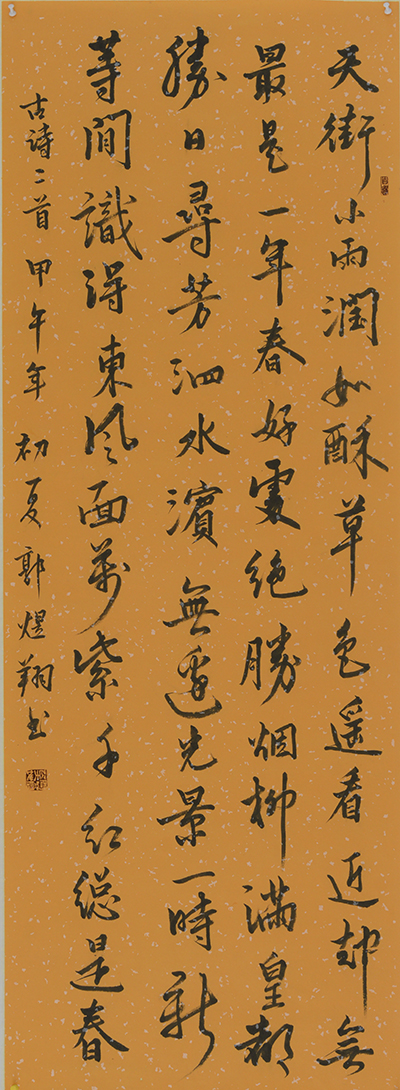 天街小雨潤如酥草色遥看近却無
最是一年春好處絶勝烟柳滿皇都
勝日尋芳泗水濱無邊光景一時新
等閒識得東風面萬紫千紅總是春
古詩二首甲午年初夏郭煜翔書